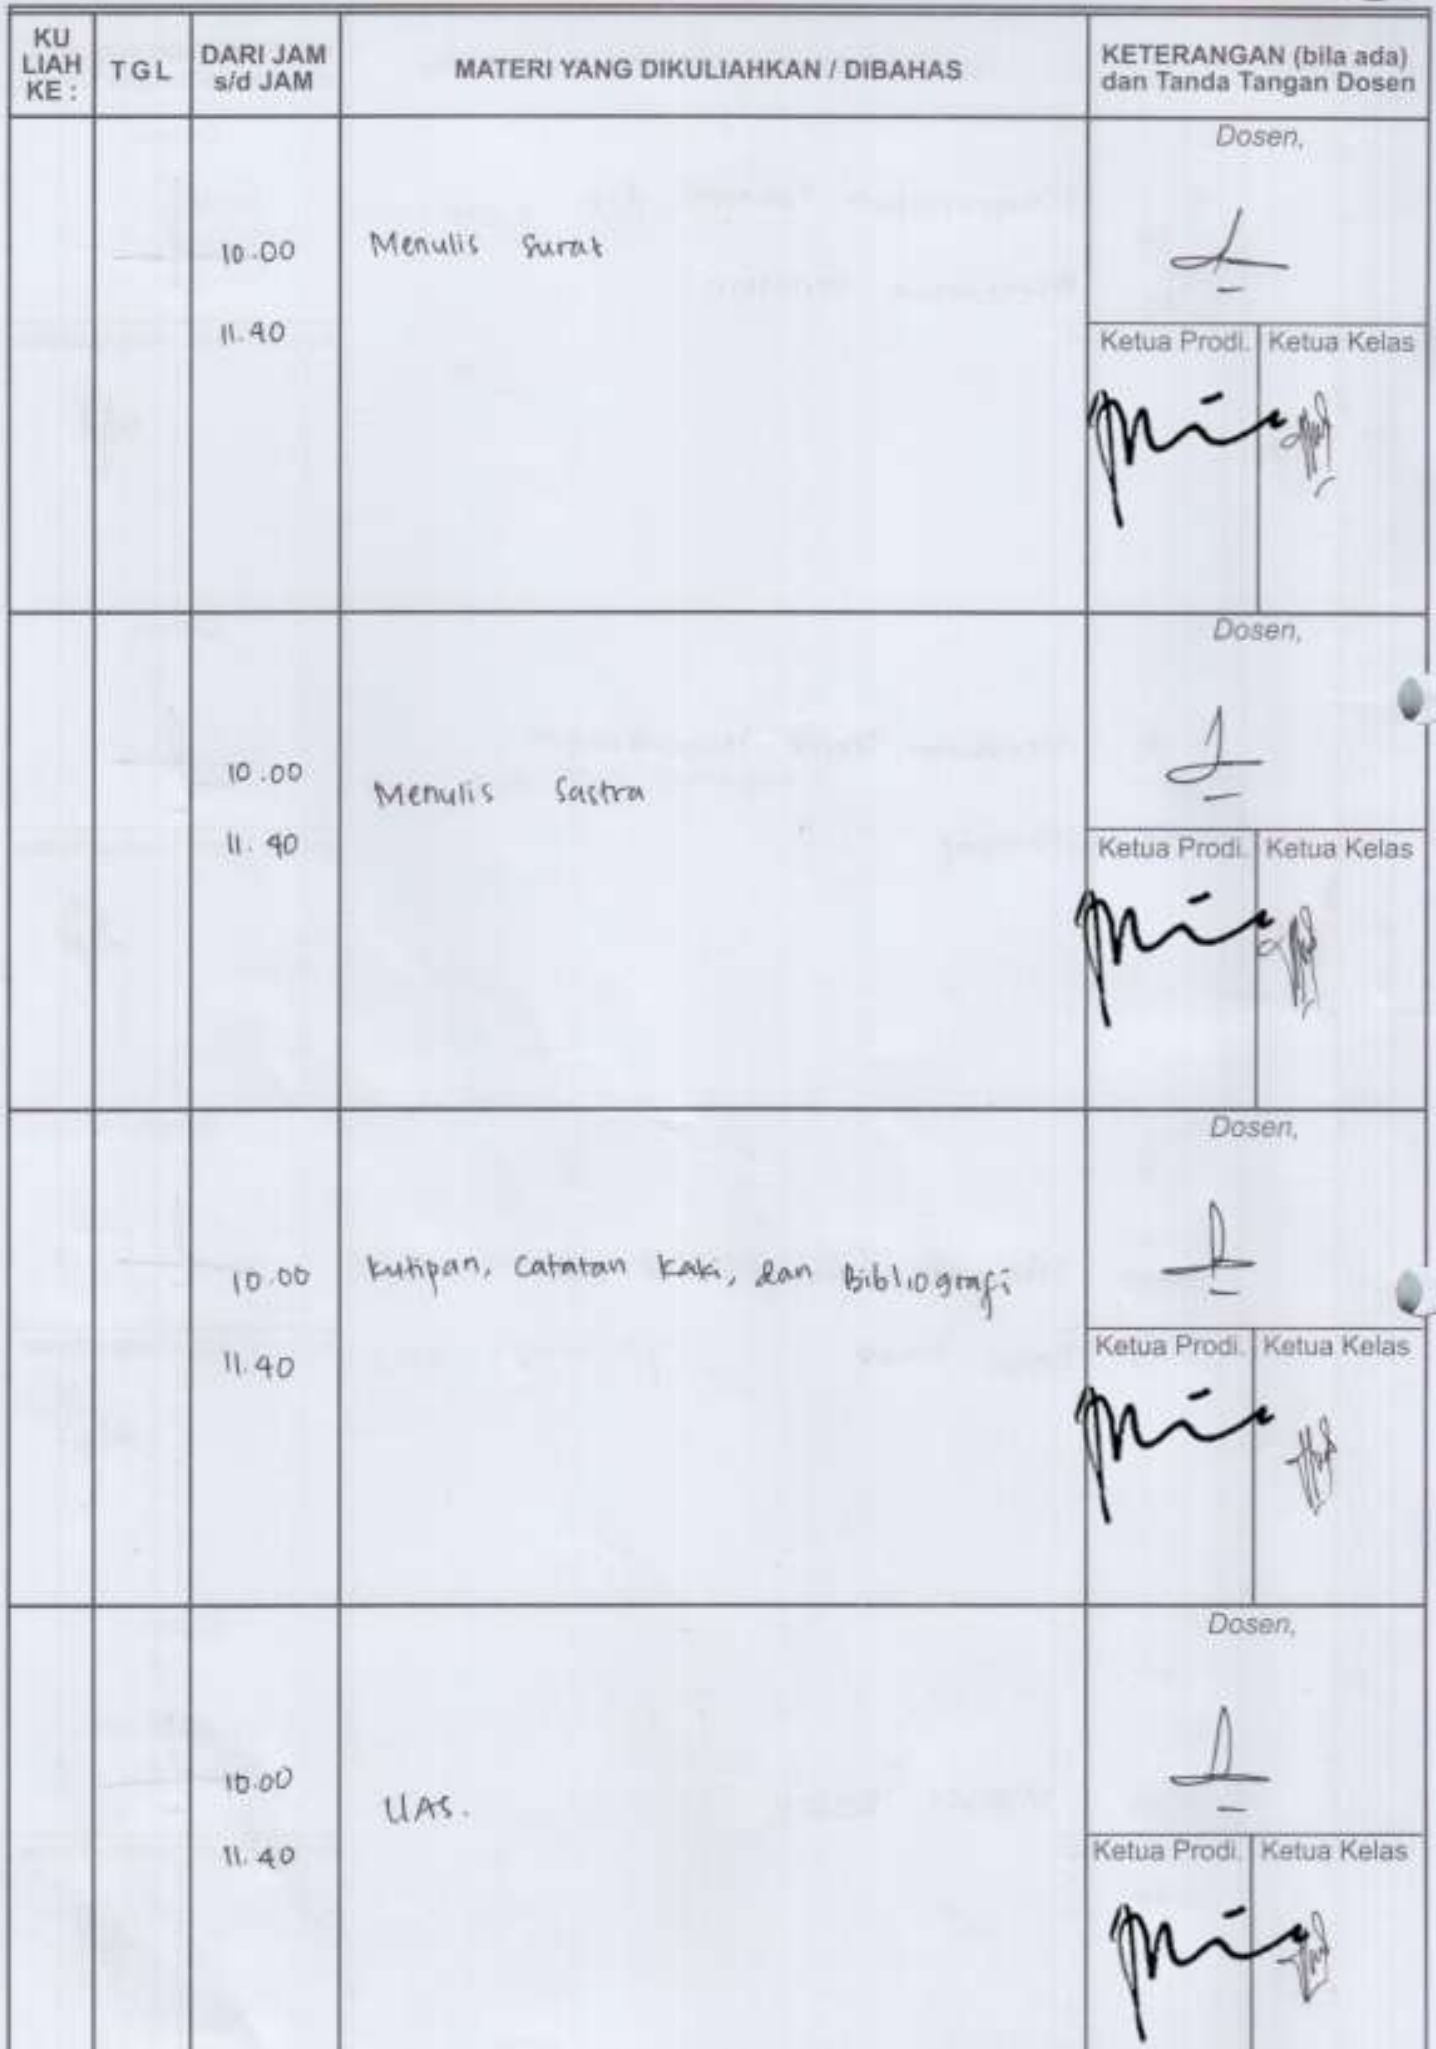 KU
LIAH
KE :
TGL
DARI JAM
s/d JAM
MATERI YANG DIKULIAHKAN / DIBAHAS
KETERANGAN (bila ada)
dan Tanda Tangan Dosen
Dosen,
10.00
Menulis Surat
11.40
Ketua Prodi. Ketua Kelas
Dosen,
10.00
Menulis Sastra
11.40
Ketua Prodi. Ketua Kelas
Dosen,
10.00
kutipan, Catatan kaki, dan Bibliografi
11.40
Ketua Prodi. Ketua Kelas
Dosen,
10.00
UAS.
11.40
Ketua Prodi. Ketua Kelas